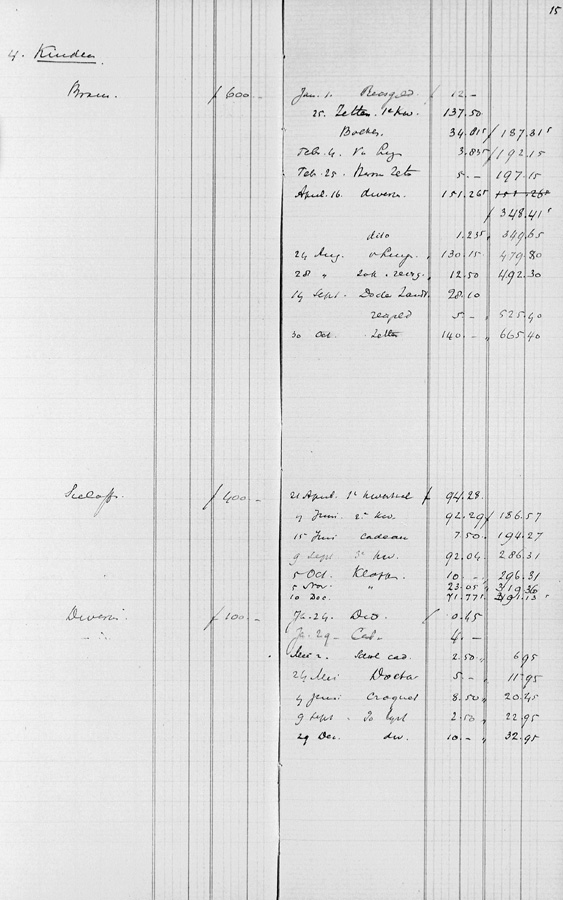 15
4. Kinder
Bram. f 600.- Jan. 1. Reisgeld f 12.-
25. Zetten. 1e kw. 137.50
Boeken 34.815 f 187.315
Feb. 4. v. 3.835 f 192.15
Feb. 25. Zett 5.- 197.15
April. 16. diversen 151.265
f 348.415
dito 1.235 " 349.65
24 Aug. " 130.15 " 479.80
28 " " 12.50 " 492.30
14 Sept. 28.10
reisgeld 5.- " 525.40
30 Oct. Zetten 140.- " 665.40
f 400.- 21 April. 1e kwartaal f 94.28
9 Juni 2e kw. 92.29 f 186.57
15 Juni cadeau 7.50 " 194.27
9 Sept 3e kw. 92.04 " 286.31
5 Oct. 10.- " 296.31
5 Nov. " 23.05 " 319.36
10 Dec. 71.775 391.135
Diversen f 100.- Ja. 24. Dio. f 0.45
Ja. 29 - Cad. 4.-
Mei 2. cad. 2.50 " 6.95
24 Mei Doctor 5.- " 11.95
4 Juni Croquet 8.50 " 20.45
9 Sept. 2.50 " 22.95
29 Dec. div. 10.- " 32.95